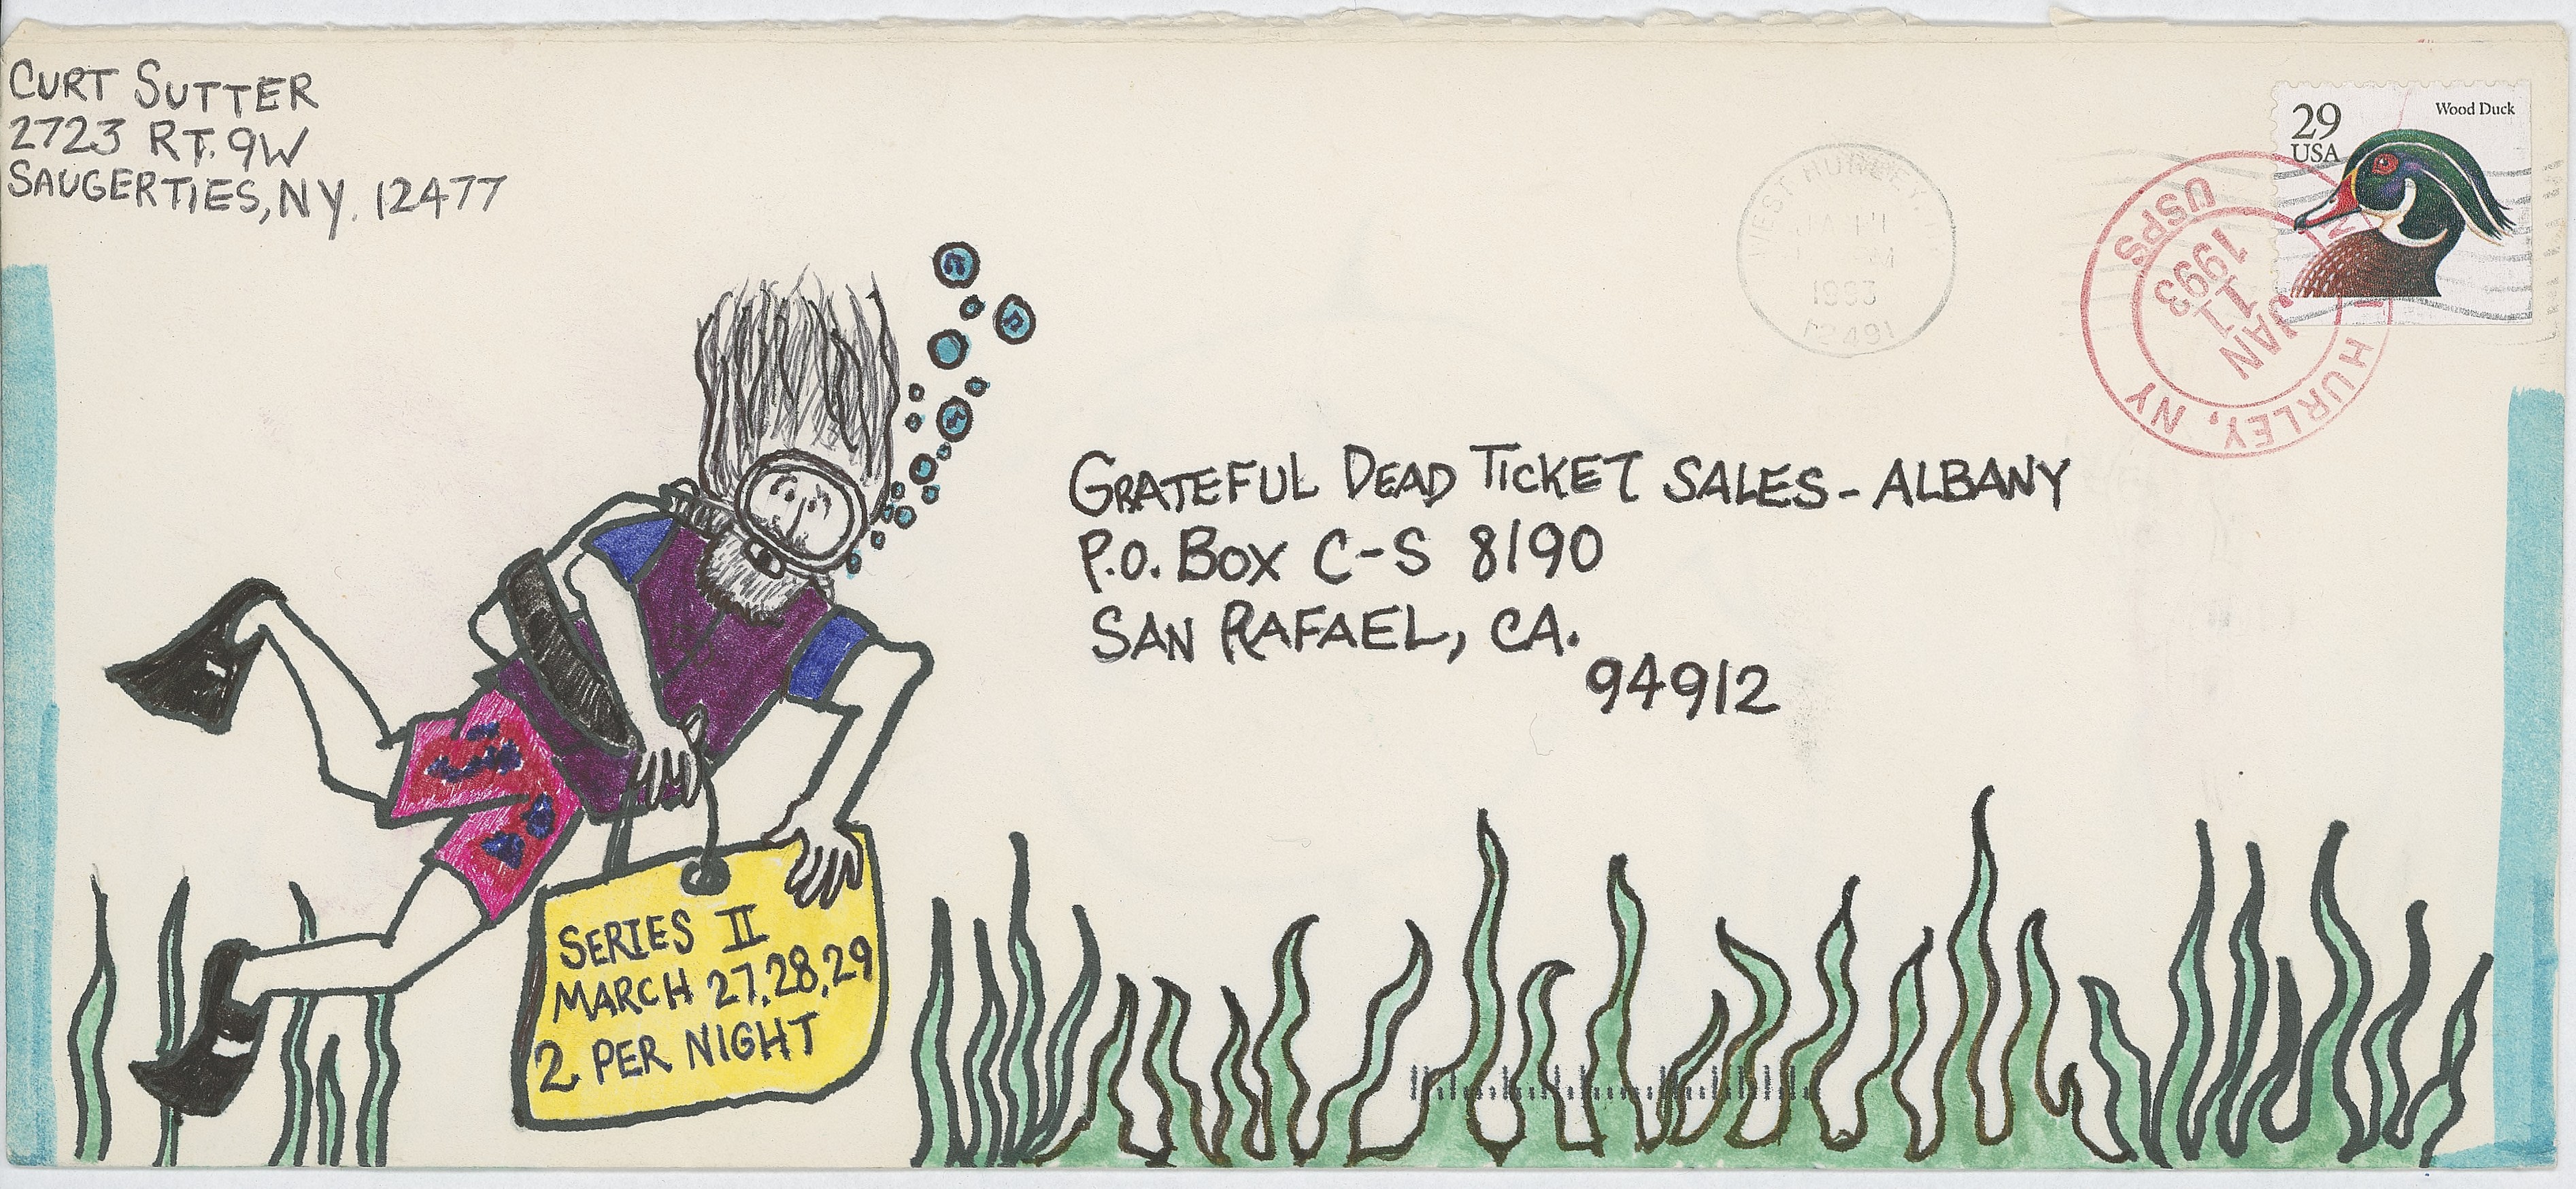 CURT SUTTER
2723 RT. 9W
SAUGERTIES, NY. 12477
29
USA
Wood Duck
WEST HURLEY,
1993
12491
HURLEY, NY
USPS
JAN
11
1993
GRATEFUL DEAD TICKET SALES - ALBANY
P.O. BOX C-S 8190
SAN RAFAEL, CA.
94912
SERIES II
MARCH 27, 28, 29
2 PER NIGHT